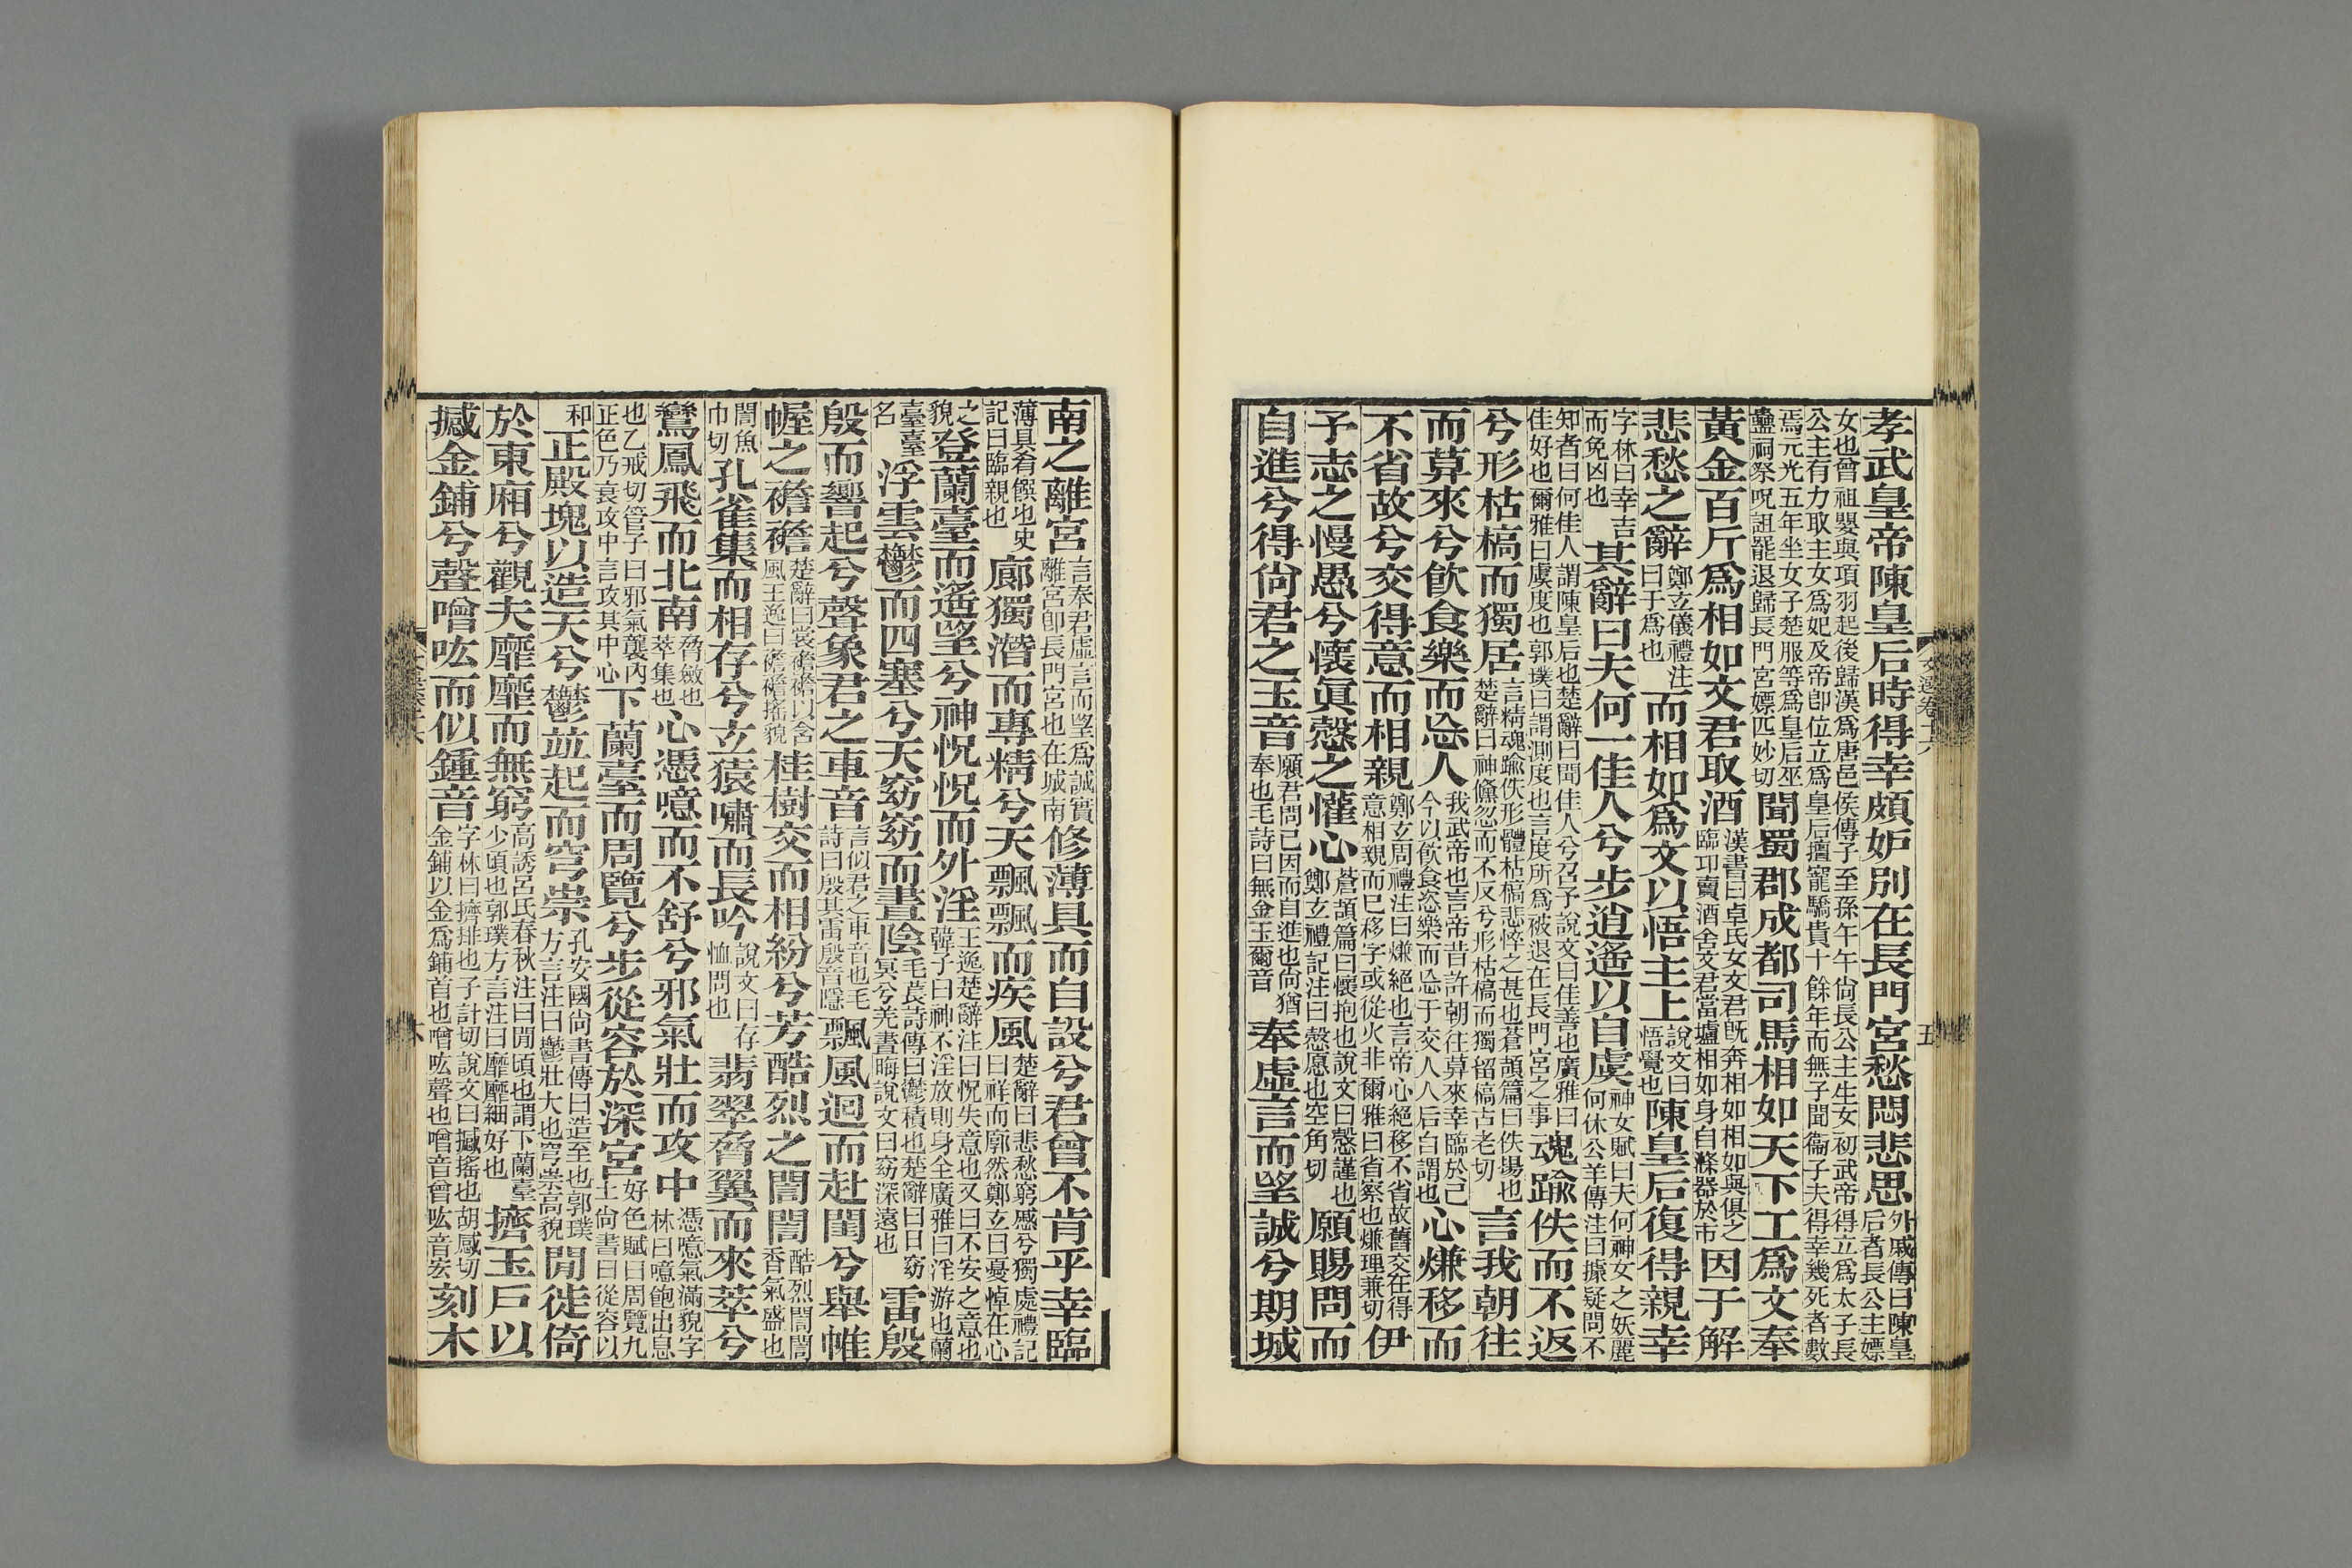 孝武皇帝陳皇后時得幸頗妒別在長門宮愁悶悲思外戚傳曰陳皇后者長公主嫖
女也曾祖嬰與項羽起後歸漢爲唐邑侯傳子至孫午午尙長公主生女初武帝得立爲太子長公主有力取主女爲妃及帝卽位立爲皇后擅寵驕貴十餘年而無子聞衞子夫得幸幾死者數
焉元光五年坐女子楚服等爲皇后巫蠱祠祭呪詛罷退歸長門宮嫖匹妙切聞蜀郡成都司馬相如天下工爲文奉
黃金百斤爲相如文君取酒漢書曰卓氏女文君旣奔相如相如與俱之臨卭賣酒舍文君當壚相如身自滌器於市因于解
悲愁之辭鄭玄儀禮注曰于爲也而相如爲文以悟主上說文曰悟覺也陳皇后復得親幸
字林曰幸吉而免凶也其辭曰夫何一佳人兮步逍遙以自虞神女賦曰夫何神女之妖麗何休公羊傳注曰據疑問不
知者曰何佳人謂陳皇后也楚辭曰聞佳人兮召予說文曰佳善也廣雅曰佳好也爾雅曰虞度也郭璞曰謂測度也言度所爲被退在長門宮之事魂踰佚而不返
兮形枯槁而獨居言精魂踰佚形體枯槁悲悴之甚也蒼頡篇曰佚惕也楚辭曰神儵忽而不反兮形枯槁而獨留槁古老切言我朝往
而暮來兮飮食樂而忘人我武帝也言帝昔許朝往暮來幸臨於己今以飮食恣樂而忘于交人人后自謂也心慊移而
不省故兮交得意而相親鄭玄周禮注曰慊絕也言帝心絕移不省故舊交在得意相親而已移字或從火非爾雅曰省察也慊理兼切伊
予志之慢愚兮懷眞慤之懽心蒼頡篇曰懷抱也說文曰慤謹也鄭玄禮記注曰慤愿也空角切願賜問而
自進兮得尙君之玉音願君問己因而自進也尙猶奉也毛詩曰無金玉爾音奉虛言而望誠兮期城
文選卷十六
五
南之離宮言奉君虛言而望爲誠實離宮卽長門宮也在城南修薄具而自設兮君曾不肯乎幸臨
薄具肴饌也史記曰臨親也廓獨潛而專精兮天飄飄而疾風楚辭曰悲愁窮慼兮獨處禮記曰祥而廓然鄭玄曰憂悼在心
之貌登蘭臺而遙望兮神怳怳而外淫王逸楚辭注曰怳失意也又曰不安之意也韓子曰神不淫放則身全廣雅曰淫游也蘭
臺臺名浮雲鬱而四塞兮天窈窈而晝陰毛萇詩傳曰鬱積也楚辭曰日窈冥兮羌晝晦說文曰窈深遠也雷殷
殷而響起兮聲象君之車音言似君之車音也毛詩曰殷其雷殷音隱飄風迴而赴閨兮舉帷
幄之襜襜楚辭曰裳襜襜以含風王逸曰襜襜搖貌桂樹交而相紛兮芳酷烈之誾誾酷烈誾誾香氣盛也
誾魚巾切孔雀集而相存兮玄猿嘯而長吟說文曰存恤問也翡翠脅翼而來萃兮
鸞鳳飛而北南脅斂也萃集也心憑噫而不舒兮邪氣壯而攻中憑噫氣滿貌字林曰噫飽出息
也乙戒切管子曰邪氣襲內正色乃衰攻中言攻其中心下蘭臺而周覽兮步從容於深宮好色賦曰周覽九土尙書曰從容以
和正殿塊以造天兮鬱並起而穹崇孔安國尙書傳曰造至也郭璞方言注曰鬱壯大也穹崇高貌閒徙倚
於東廂兮觀夫靡靡而無窮高誘呂氏春秋注曰閒頃也謂下蘭臺少頃也郭璞方言注曰靡靡細好也擠玉戶以
撼金鋪兮聲噌吰而似鍾音字林曰擠排也子計切說文曰撼搖也胡感切金鋪以金爲鋪首也噌吰聲也噌音曾吰音宏刻木